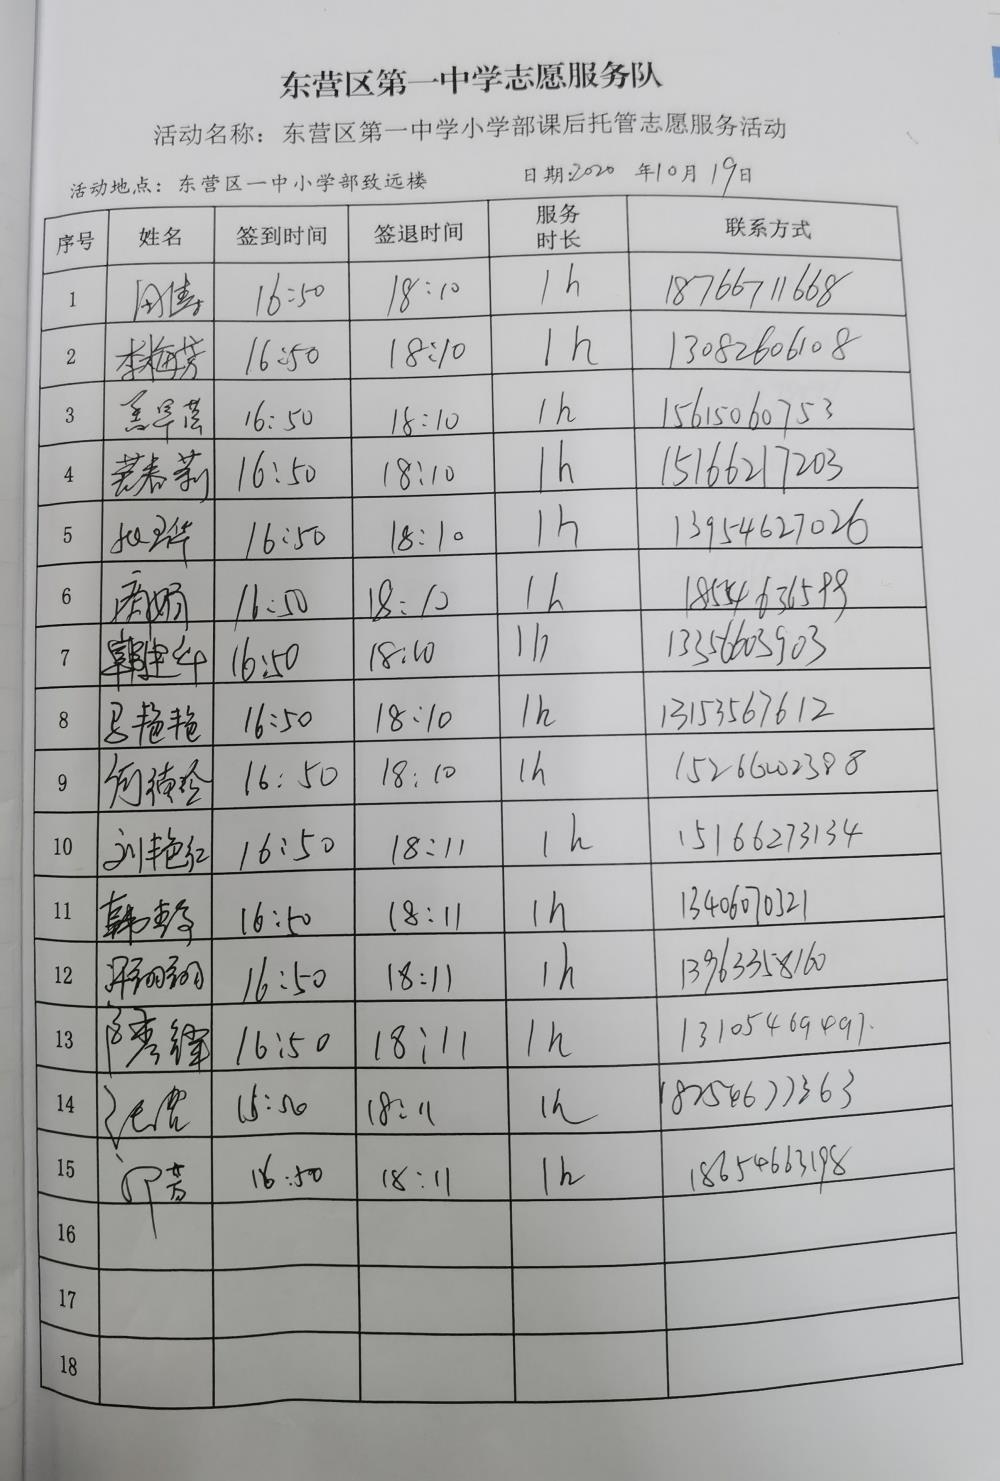 东营区第一中学志愿服务队
活动名称：东营区第一中学小学部课后托管志愿服务活动
活动地点：东营区一中小学部致远楼 日期:2020 年10月19日
序号 姓名 签到时间 签退时间 服务时长 联系方式
1 16:50 18:10 1h 18766711668
2 李梅芳 16:50 18:10 1h 13082606108
3 16:50 18:10 1h 15615060753
4 16:50 18:10 1h 15166217203
5 16:50 18:10 1h 13954627026
6 16:50 18:10 1h 18554636599
7 16:50 18:10 1h 13356603903
8 吕艳艳 16:50 18:10 1h 13153567612
9 16:50 18:10 1h
10 刘艳红 16:50 18:11 1h 15166273134
11 16:50 18:11 1h 13406070321
12 16:50 18:11 1h 13963358160
13 16:50 18:11 1h
14 18:11 1h 18254677363
15 邓芳 16:50 18:11 1h 18654663198
16
17
18